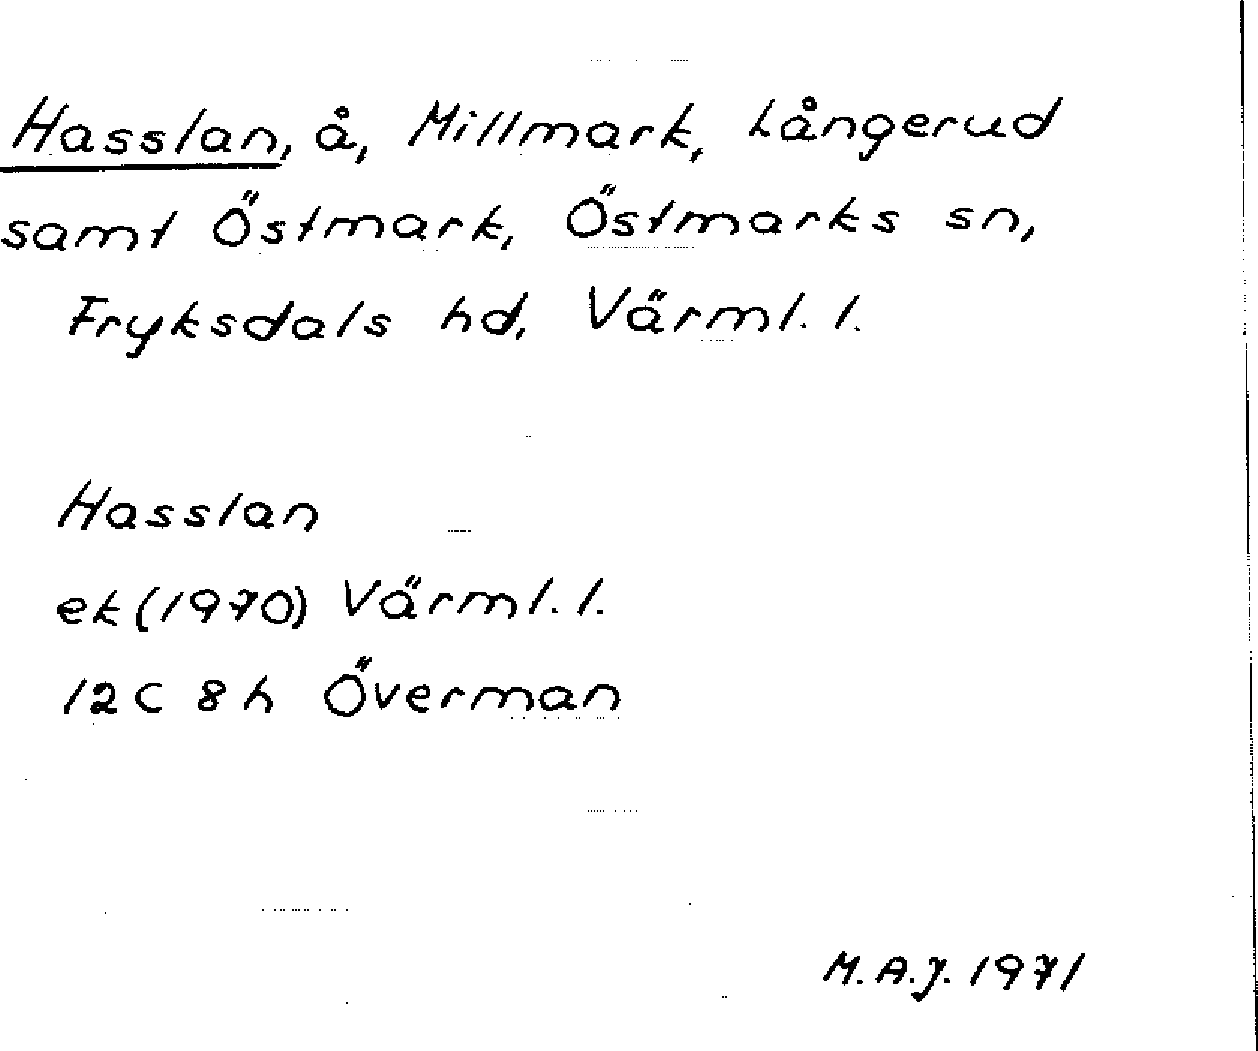 Hasslan, å, Millmark, Långerud
samt Östmark, Östmarks sn,
Fryksdals hd, Värml. l.
Hasslan
ek (1970) Värml. l.
12C 8h Överman
M.A.J. 1971